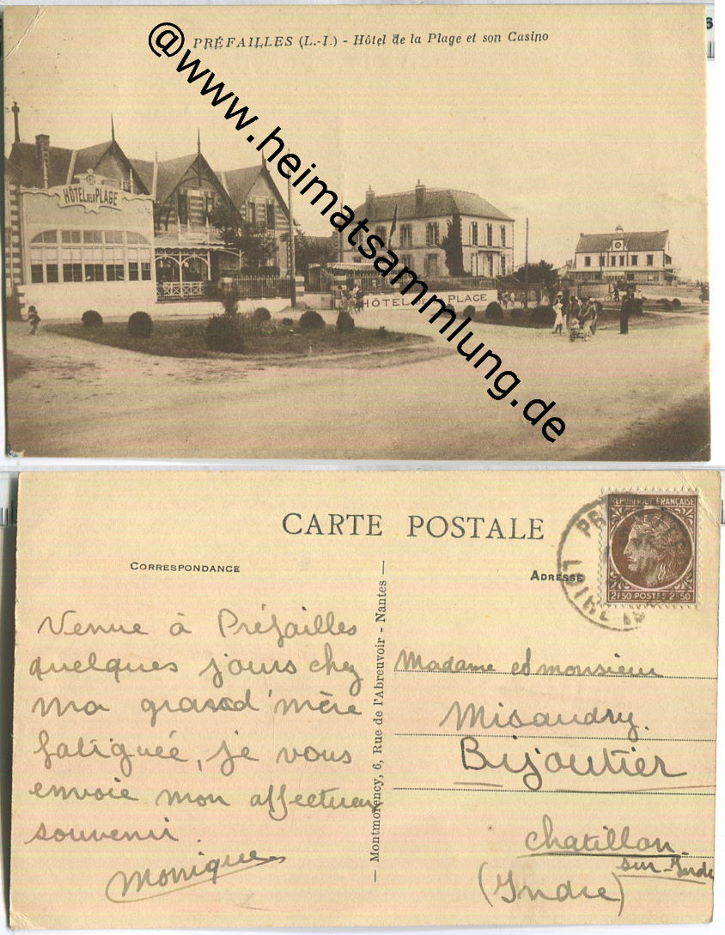 PRÉFAILLES (L.-I.) - Hôtel de la Plage et son Casino
@www.heimatsammlung.de
HÔTEL DE LA PLAGE
HÔTEL DE LA PLAGE
CARTE POSTALE
CORRESPONDANCE
ADRESSE
RÉPUBLIQUE FRANÇAISE
2F50 POSTES 2F50
Venue à Préfailles
quelques jours chez
ma grand'mère
fatiguée, je vous
envoie mon affectueux
souvenir.
Monique
Montmorency, 6, Rue de l'Abreuvoir - Nantes
Madame et monsieur
Misaudry.
Bijoutier
Chatillon
sur-Indre
(Indre)